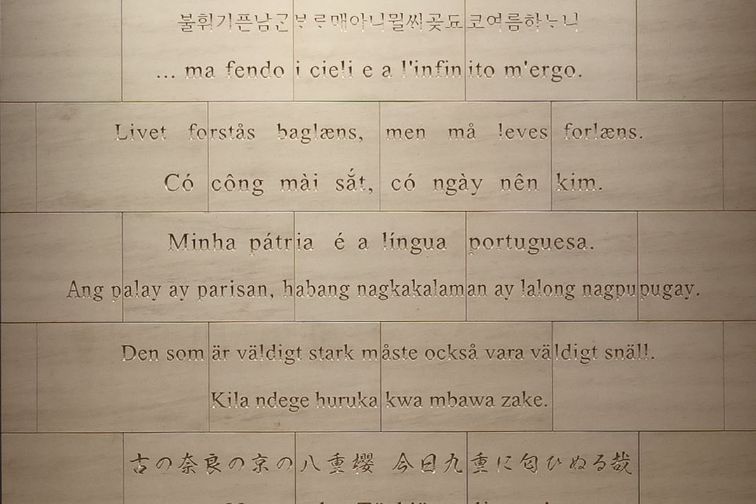 불휘기픈남ᄀᆞᆫᄇᆞᄅᆞ매아니뮐ᄊᆡ곶됴코여름하ᄂᆞ니
... ma fendo i cieli e a l'infinito m'ergo.
Livet forstås baglæns, men må leves forlæns.
Có công mài sắt, có ngày nên kim.
Minha pátria é a língua portuguesa.
Ang palay ay parisan, habang nagkakalaman ay lalong nagpupugay.
Den som är väldigt stark måste också vara väldigt snäll.
Kila ndege huruka kwa mbawa zake.
古の奈良の京の八重櫻 今日九重に匂ひぬる哉